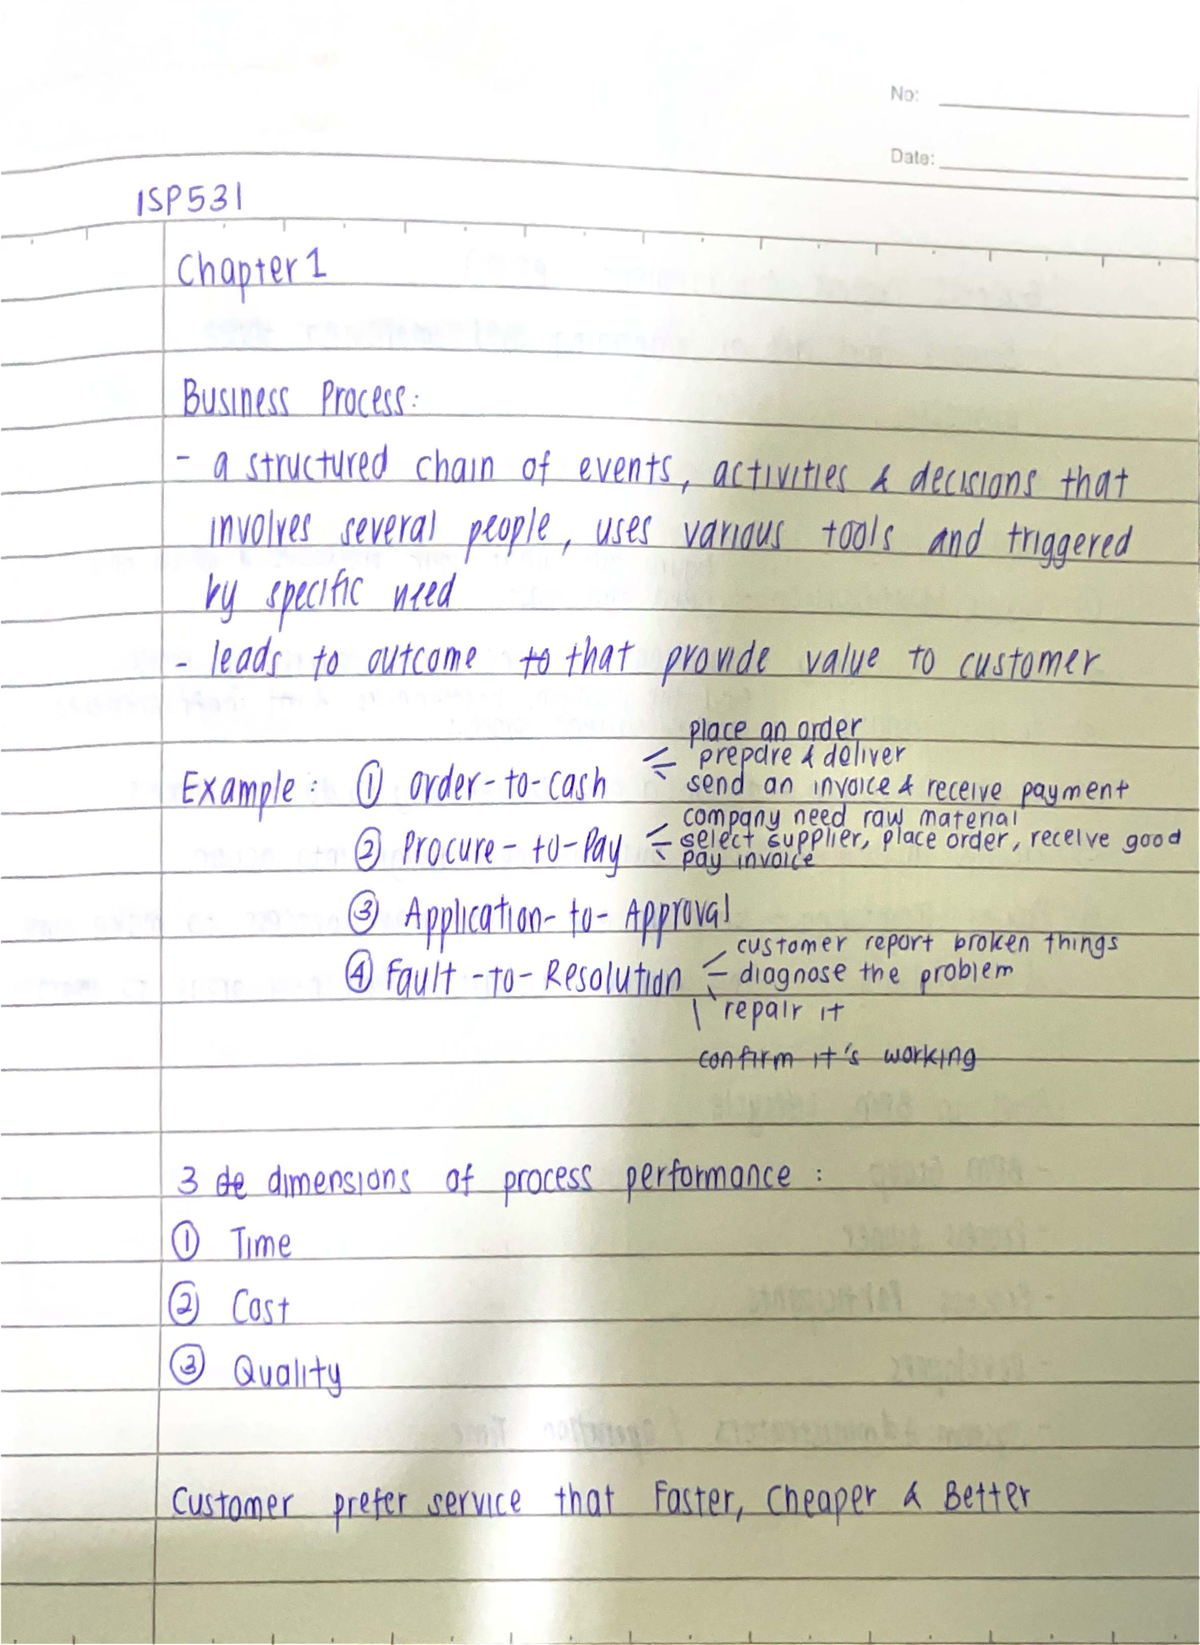 No:
Date:
ISP531
Chapter 1
Business Process:
- a structured chain of events, activities & decisions that
involves several people, uses various tools and triggered
by specific need
- leads to outcome to that provide value to customer
place an order
prepare & deliver
Example: ① Order-to-cash send an invoice & receive payment
company need raw material
② Procure-to-Pay select supplier, place order, receive good
pay invoice
③ Application-to-Approval
customer report broken things
④ Fault-to-Resolution diagnose the problem
repair it
confirm it's working
3 de dimensions of process performance:
① Time
② Cost
③ Quality
Customer prefer service that Faster, Cheaper & Better